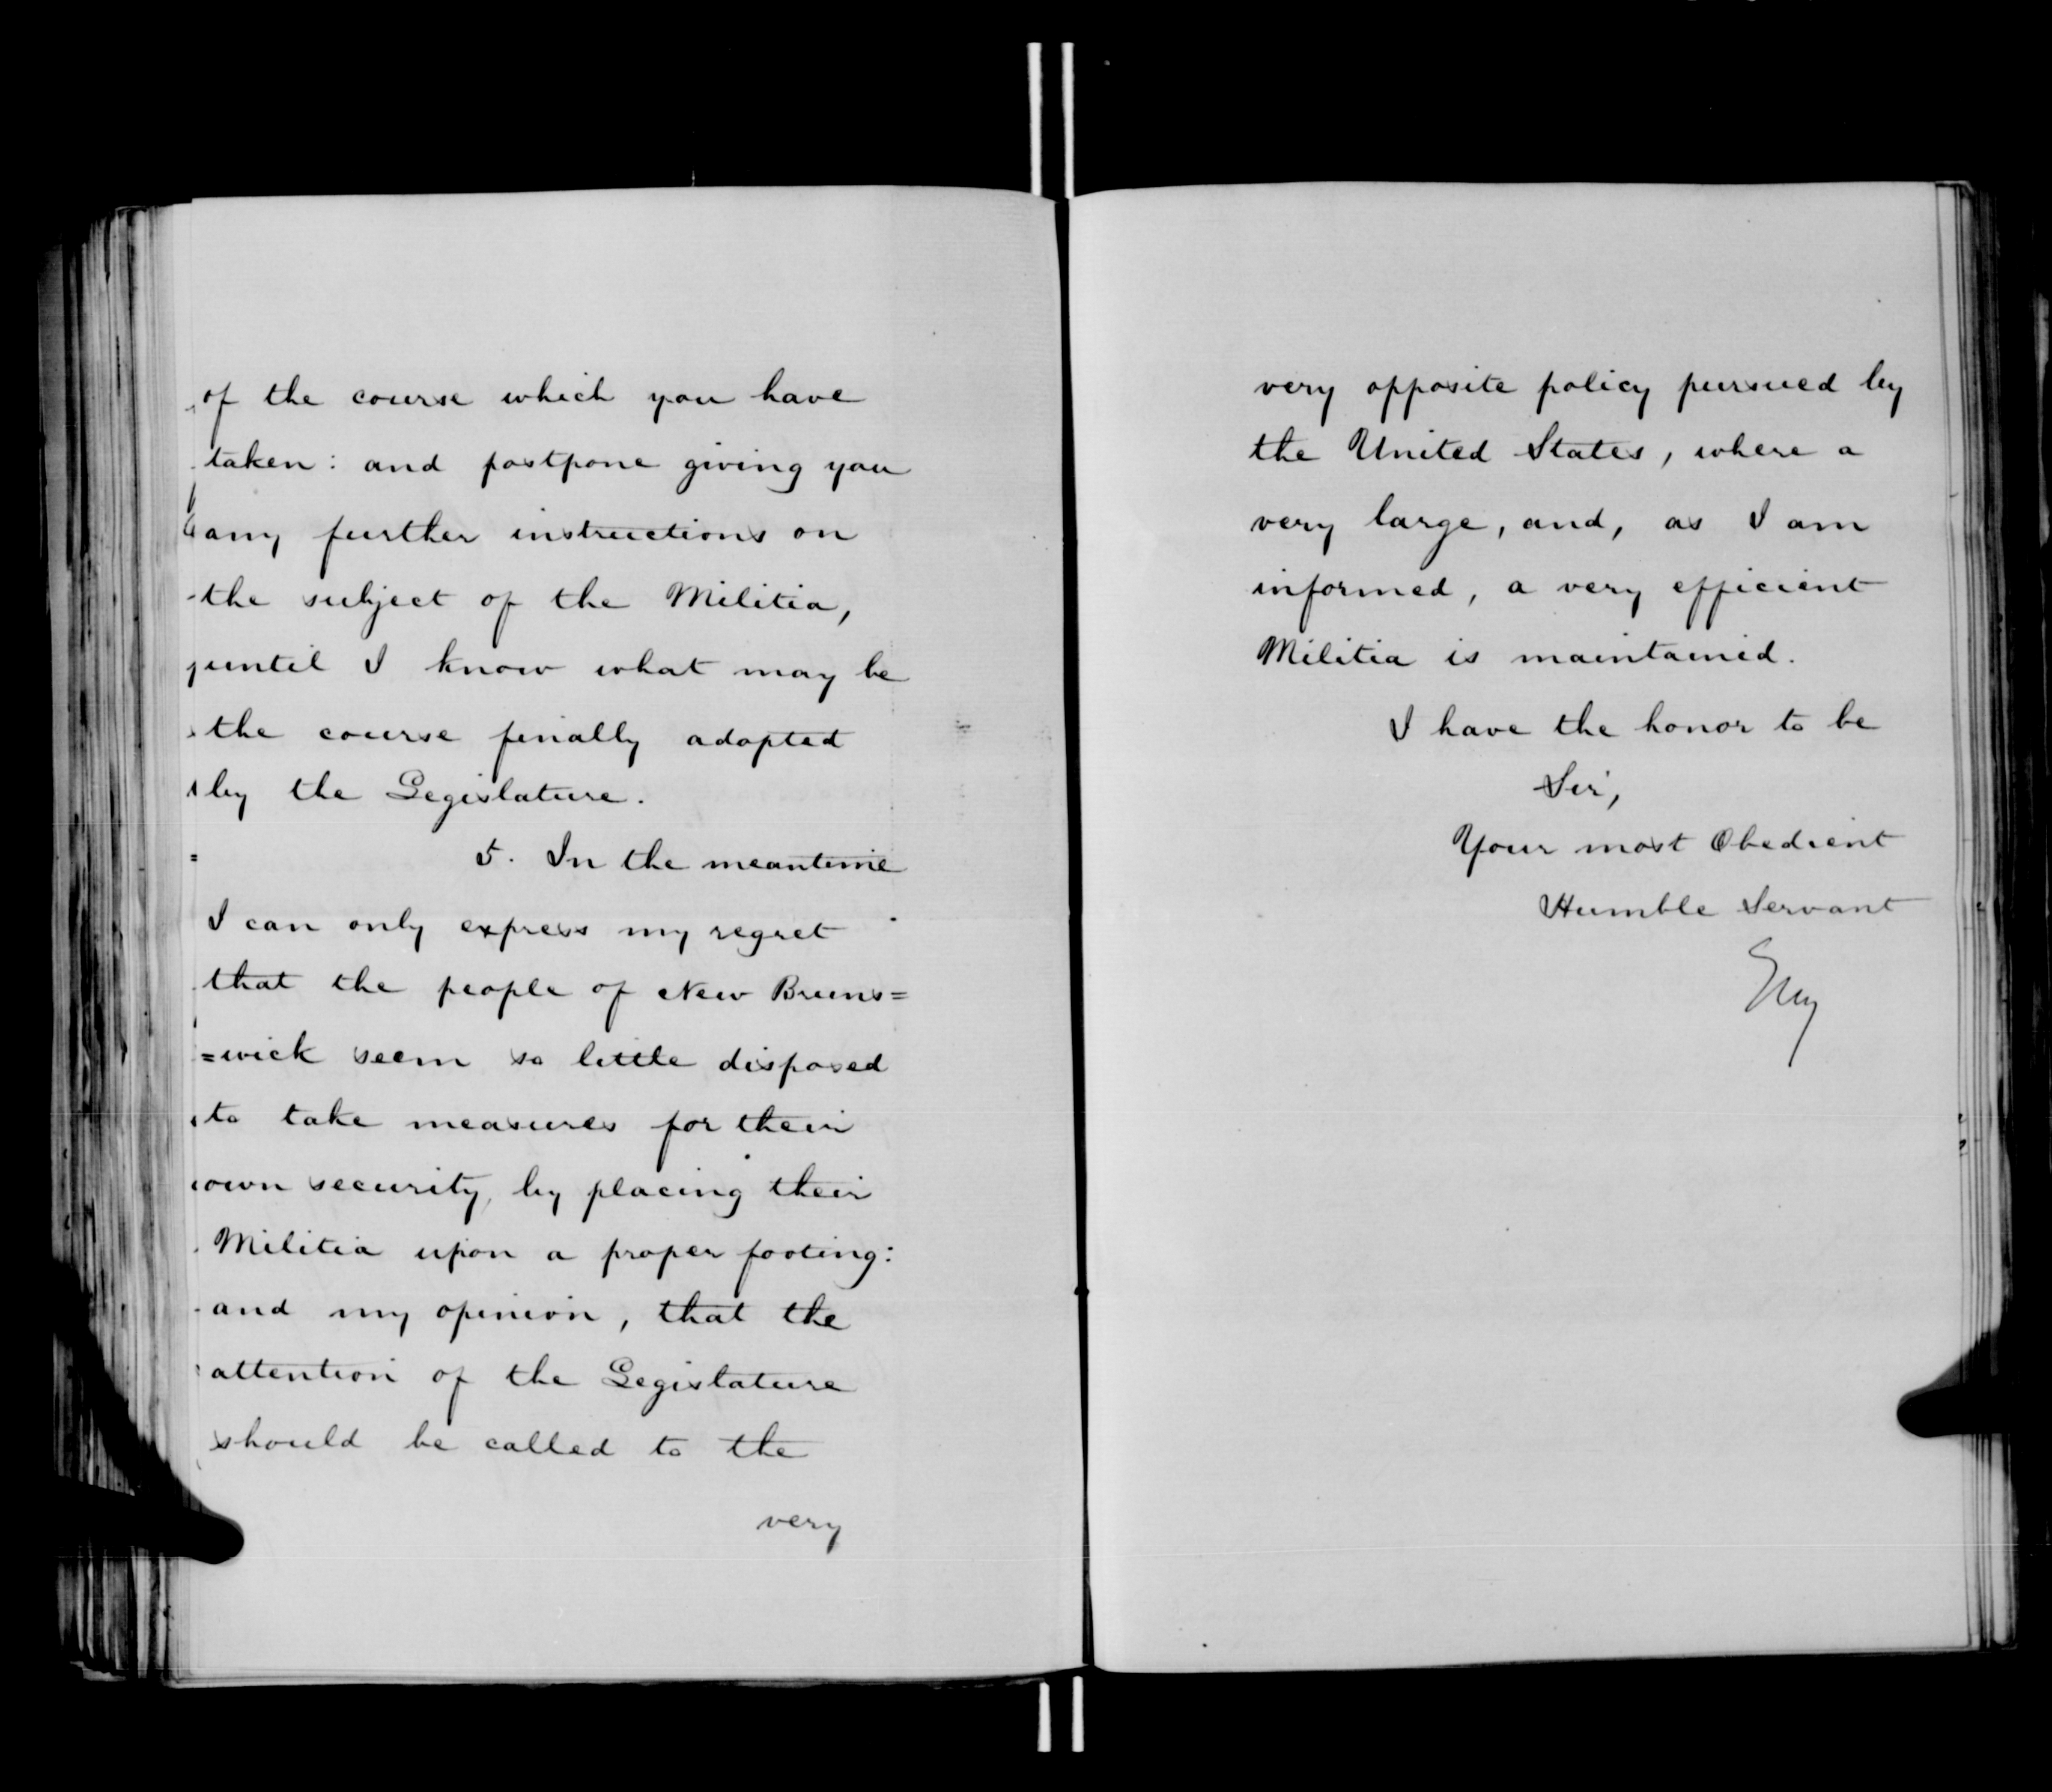 of the course which you have
taken: and postpone giving you
any further instructions on
the subject of the Militia,
until I know what may be
the course finally adopted
by the Legislature.
5. In the meantime
I can only express my regret
that the people of New Bruns=
=wick seem so little disposed
to take measures for their
own security, by placing their
Militia upon a proper footing:
and my opinion, that the
attention of the Legislature
should be called to the
very
very opposite policy pursued by
the United States, where a
very large, and, as I am
informed, a very efficient
Militia is maintained.
I have the honor to be
Sir,
Your most Obedient
Humble Servant
Grey